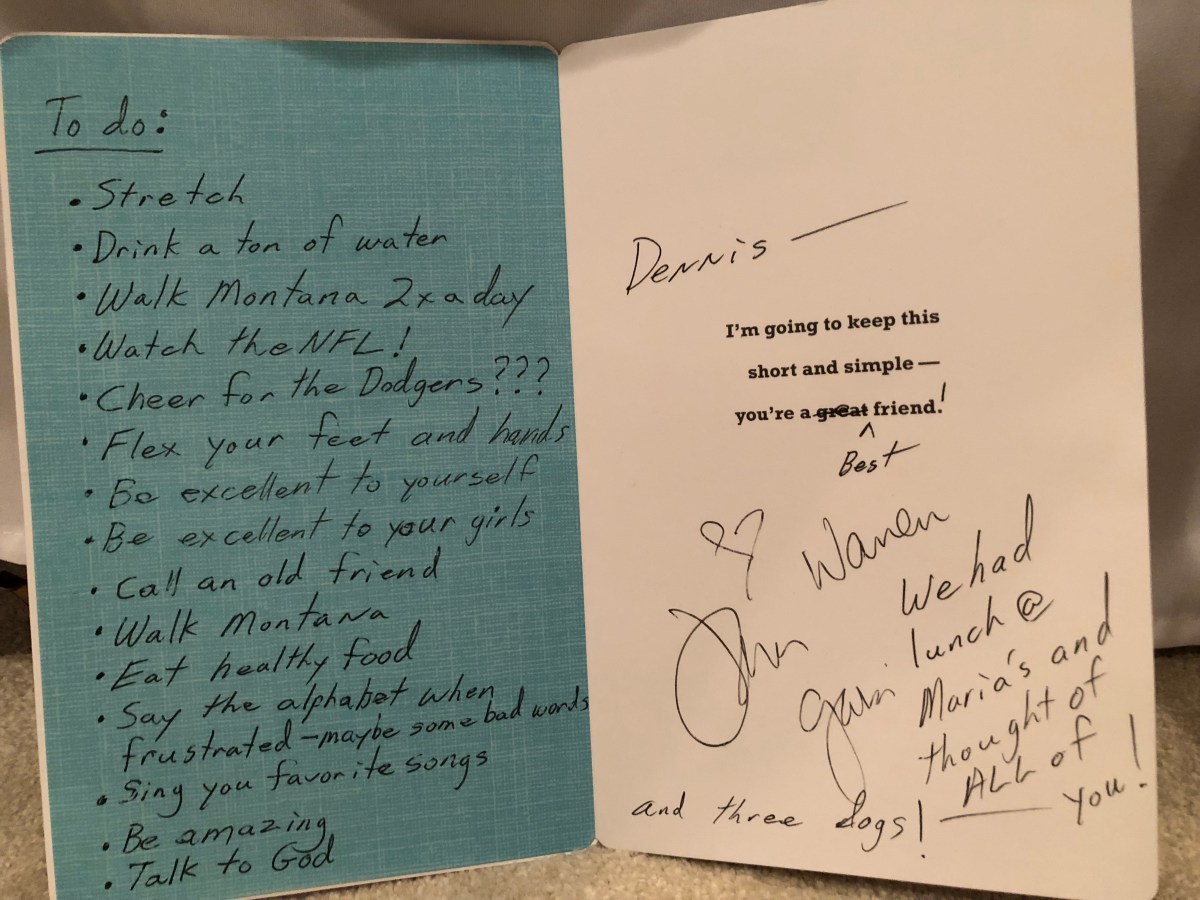 To do:
• Stretch
• Drink a ton of water
• Walk Montana 2x a day
• Watch the NFL!
• Cheer for the Dodgers???
• Flex your feet and hands
• Be excellent to yourself
• Be excellent to your girls
• Call an old friend
• Walk Montana
• Eat healthy food
• Say the alphabet when
frustrated - maybe some bad words
• Sing you favorite songs
• Be amazing
• Talk to God
Dennis —
I'm going to keep this
short and simple —
you're a great friend.!
^
Best
♡ Warren
We had
lunch @
Maria's and
thought of
ALL of
you!
and three dogs!